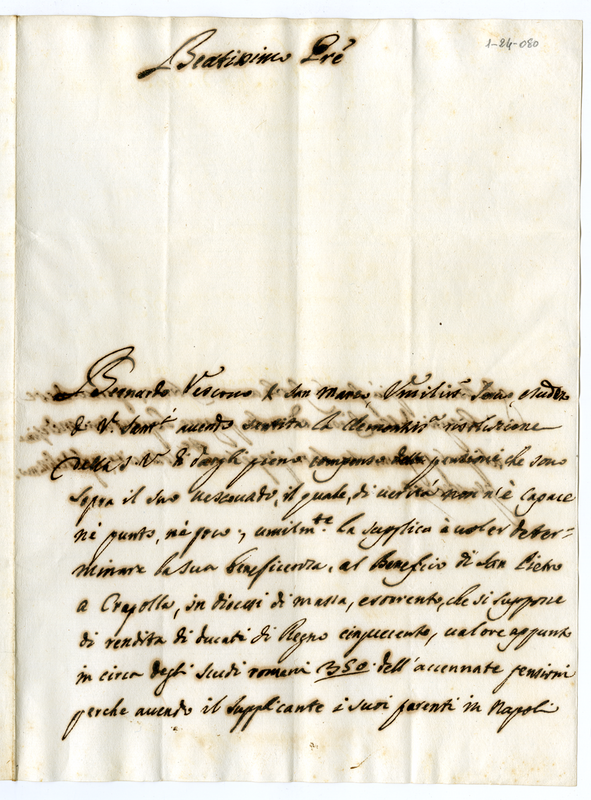 Beatissimo Prê
1-24-080
Bernardo Vescovo di San Marco, Umiliss.º Servo, e suddito
di V.ª Sant.tà avendo sentita la clementiss.ª risoluzione
della S. V.ª di dargli pieno compenso delle pensioni, che sono
sopra il suo vescovado, il quale, di verità non n'è capace
nè punto, nè poco, umilm.te la supplica à voler deter=
minare la sua beneficenza, al Beneficio di San Pietro
a Crapolla, in diocesi di massa, e sorrento, che si suppone
di rendita di ducati di Regno cinquecento, valore appunto
in circa degli scudi romani 350. dell'accennate pensioni
perche avendo il supplicante i suoi parenti in Napoli